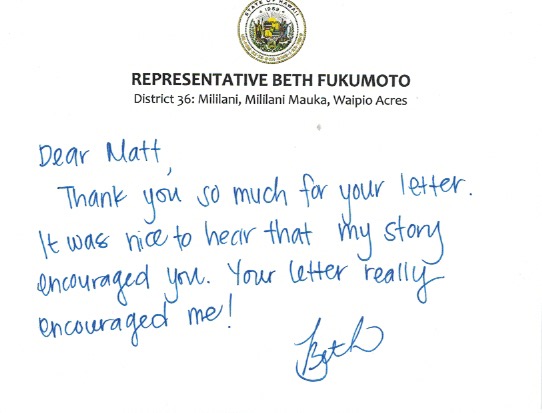 STATE OF HAWAII
1959
REPRESENTATIVE BETH FUKUMOTO
District 36: Mililani, Mililani Mauka, Waipio Acres
Dear Matt,
Thank you so much for your letter.
It was nice to hear that my story
encouraged you. Your letter really
encouraged me!
Beth